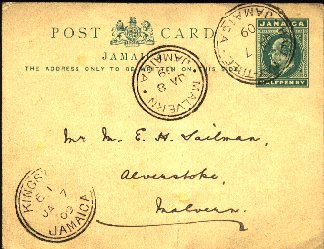 POST CARD
JAMAICA
THE ADDRESS ONLY TO BE WRITTEN ON THIS SIDE
JAMAICA
HALFPENNY
MALVERN
JA 8 09
JAMAICA
Mr M. E. H. Sailman,
Alverstoke,
Malvern.
KINGS
JA 7 09
JAMAICA